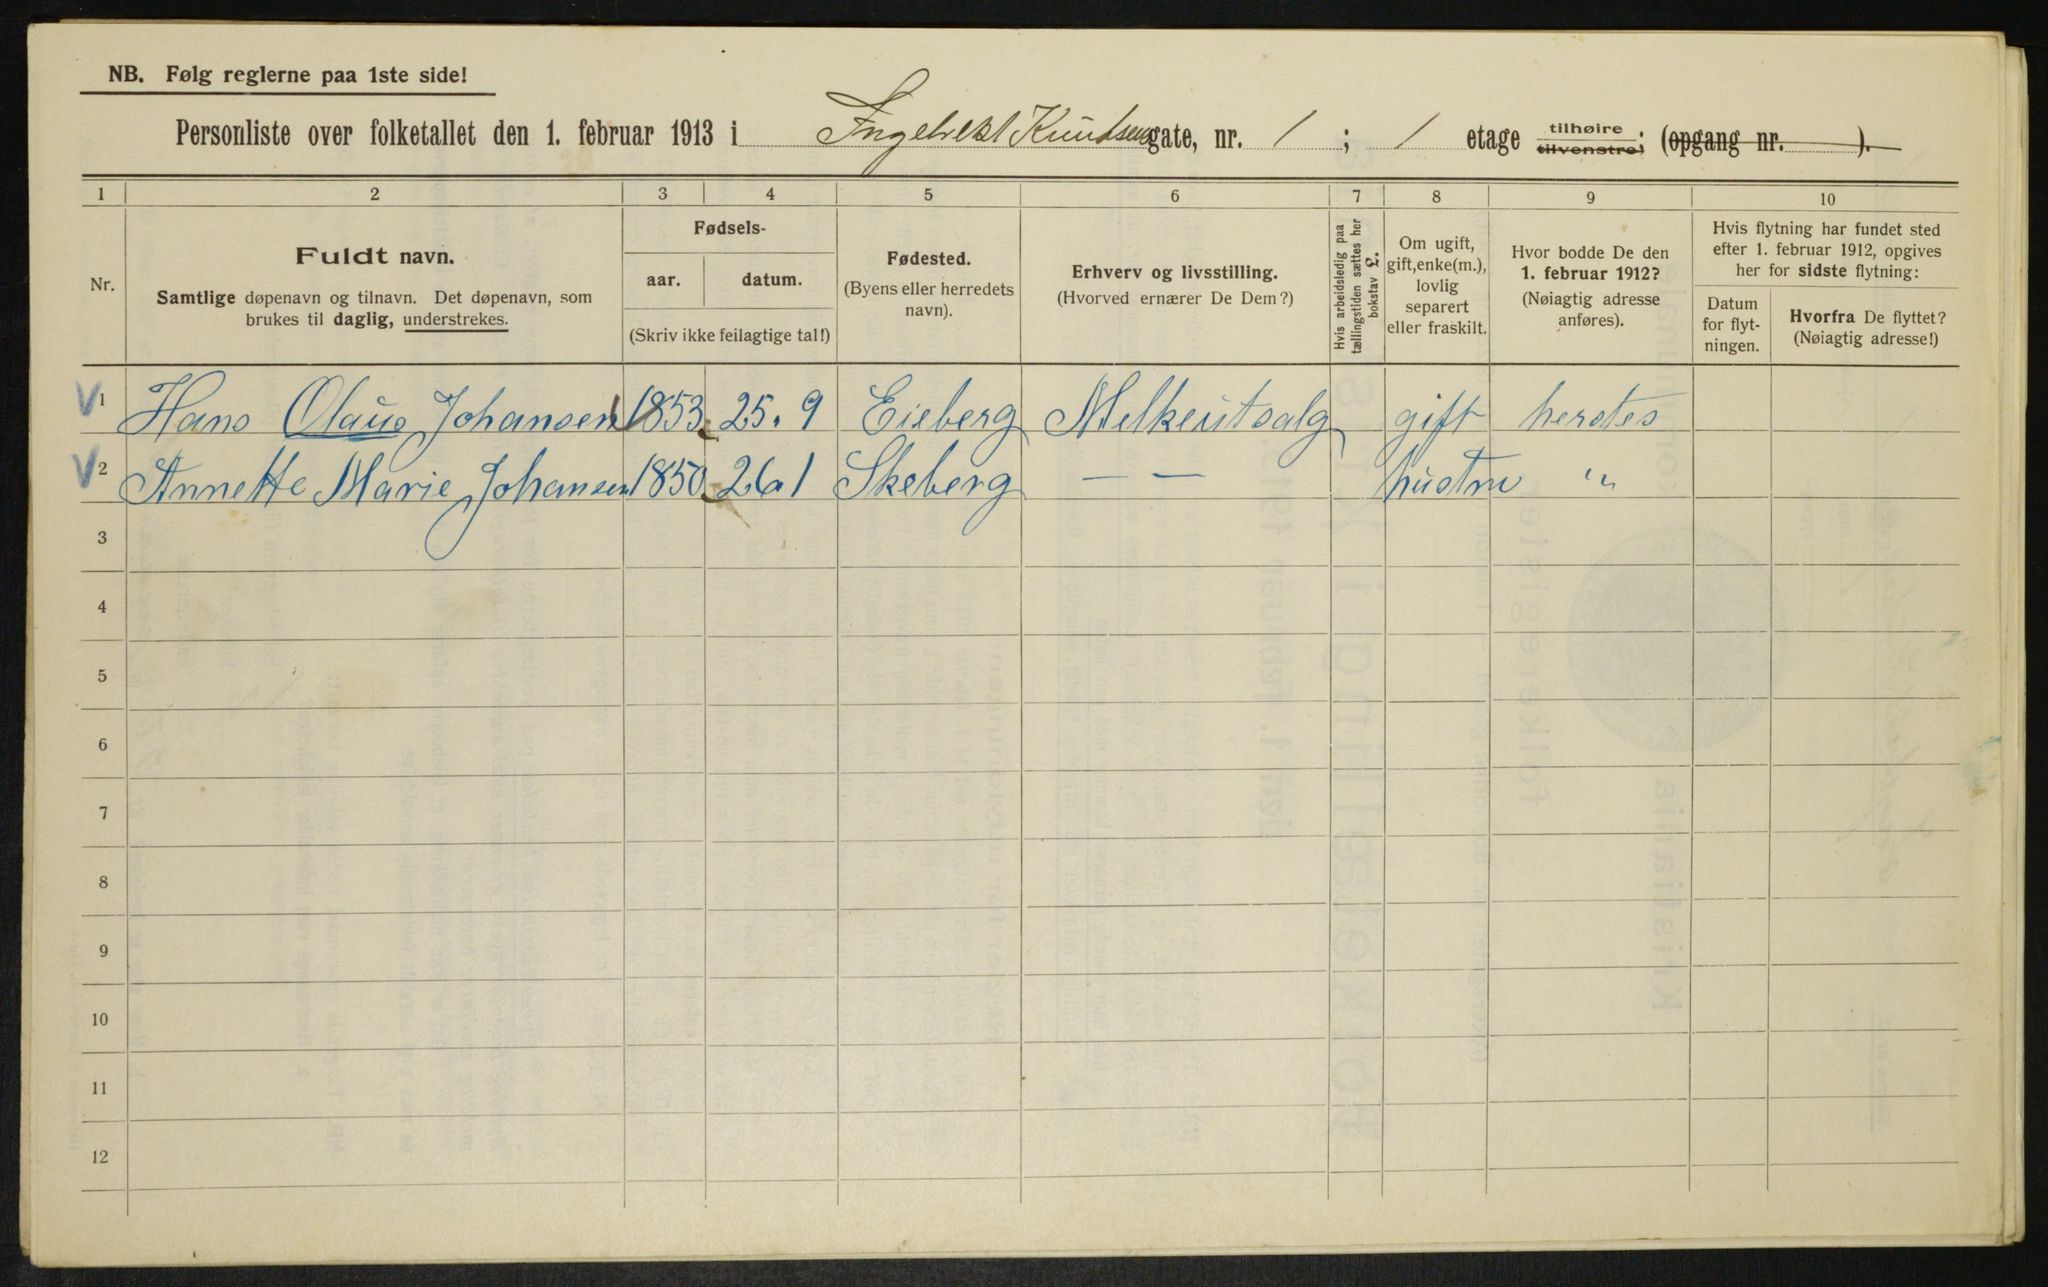 NB. Følg reglerne paa 1ste side!
Personliste over folketallet den 1. februar 1913 i Ingebrekt Knudsens gate, nr. 1 ; 1 etage tilhøire tilvenstre; (opgang nr. ).
1 2 3 4 5 6 7 8 9 10
Nr.
Fuldt navn.
Samtlige døpenavn og tilnavn. Det døpenavn, som
brukes til daglig, understrekes.
Fødsels-
aar. datum.
(Skriv ikke feilagtige tal!)
Fødested.
(Byens eller herredets
navn).
Erhverv og livsstilling.
(Hvorved ernærer De Dem?)
Hvis arbeidsledig paa
tællingstiden sættes her
bokstav L.
Om ugift,
gift, enke(m.),
lovlig
separert
eller fraskilt.
Hvor bodde De den
1. februar 1912?
(Nøiagtig adresse
anføres).
Hvis flytning har fundet sted
efter 1. februar 1912, opgives
her for sidste flytning:
Datum
for flyt-
ningen.
Hvorfra De flyttet?
(Nøiagtig adresse!)
V 1 Hans Olaus Johansen 1853 25. 9 Eieberg Melkeutsalg gift herstes
V 2 Annette Marie Johansen 1850 26 1 Skeberg — — hustru "
3
4
5
6
7
8
9
10
11
12